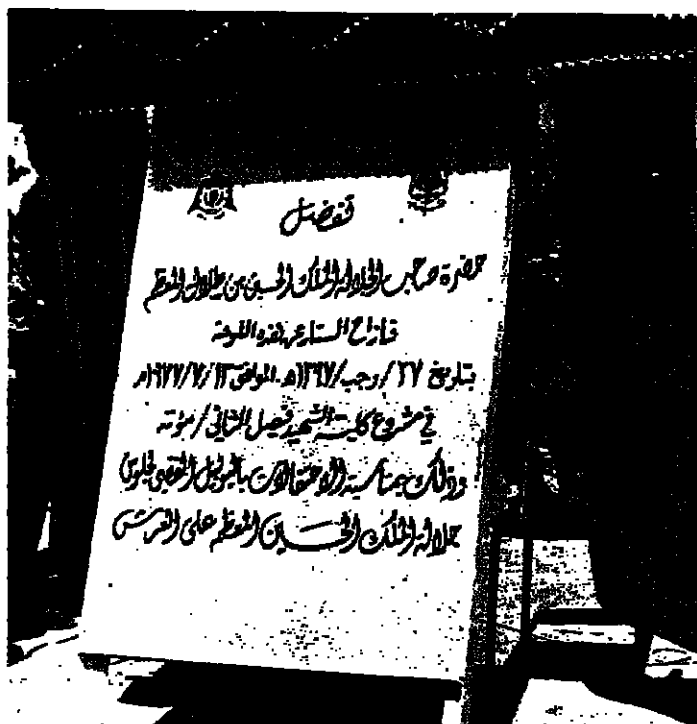 تفضل
حضرة صاحب الجلالة الملك الحسين بن طلال المعظم
فازاح الستار عن هذه اللوحة
بتاريخ ٢٧/رجب/١٣٩٧هـ الموافق ١٣/٧/١٩٧٧م
في مشروع كلية الشهيد فيصل الثاني/مؤته
وذلك بمناسبة الاحتفالات باليوبيل الفضي لجلوس
جلالة الملك الحسين المعظم على العرش